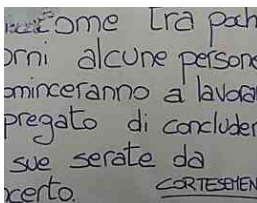 come tra poch
orni alcune persone
ominceranno a lavora
pregato di concluder
sue serate da
certo. CORTESEMEN